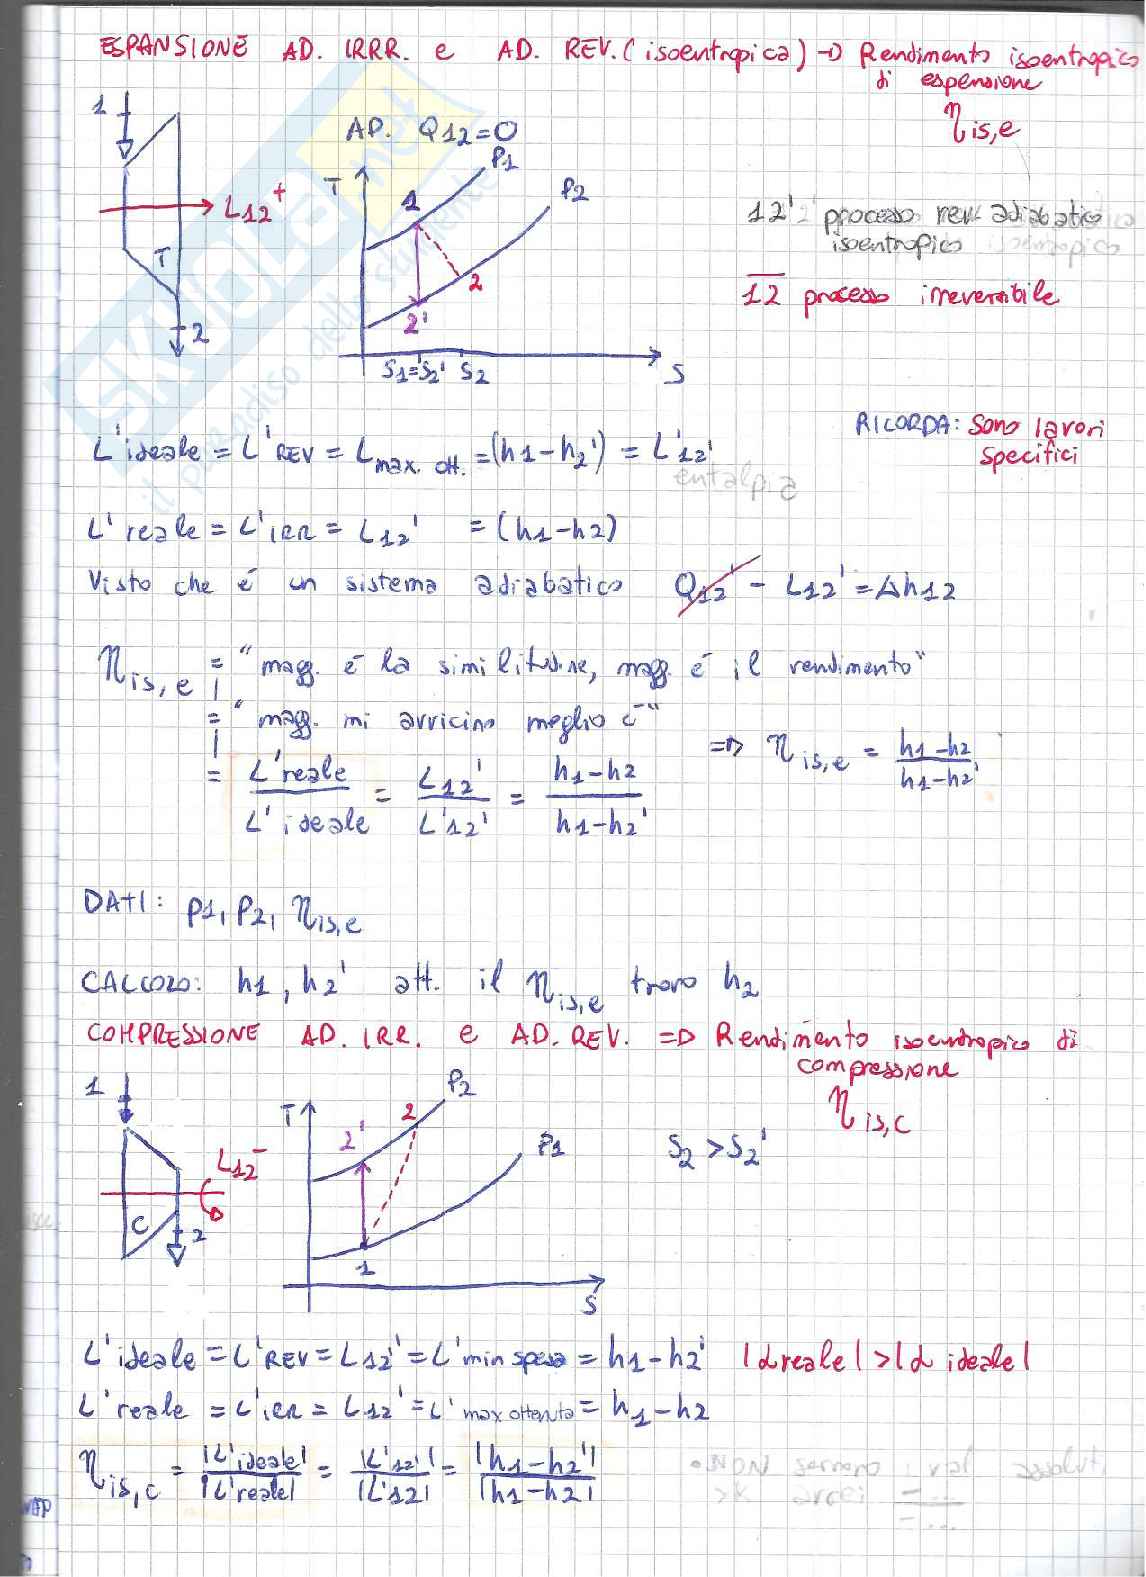 ESPANSIONE AD. IRRR. e AD. REV. (isoentropica) → Rendimento isoentropico
di espensione
η is,e
1
AD. Q12=0
T
P1
P2
L12 +
1
2
2'
T
2
S1=S2' S2
S
12' processo rev. adiabatico
isoentropico
12 processo irreversibile
RICORDA: sono lavori
specifici
L' ideale = L' REV = L max. ott. = (h1-h2') = L'12'
entalpia
L' reale = L' IRR = L12' = (h1-h2)
Visto che è un sistema adiabatico Q12' - L12' = Δh12
η is,e = "magg. è la similitudine, magg. è il rendimento"
= "magg. mi avvicino meglio è"
= L'reale / L'ideale = L12' / L'12' = h1-h2 / h1-h2'
=> η is,e = h1-h2 / h1-h2'
DATI: P1, P2, η is,e
CALCOLO: h1, h2' att. il η is,e trovo h2
COMPRESSIONE AD. IRR. e AD. REV. => Rendimento isoentropico di
compressione
η is,c
1
T
P2
2
2'
P1
L12 -
C
2
1
S
S2 > S2'
L' ideale = L' REV = L12' = L' min spesa = h1-h2' |L reale| > |L ideale|
L' reale = L' IRR = L12' = L' max ottenuta = h1-h2
η is,c = |L'ideale| / |L'reale| = |L'12'| / |L'12| = |h1-h2'| / |h1-h2|
SKUOLA.net
il paradiso dello studente